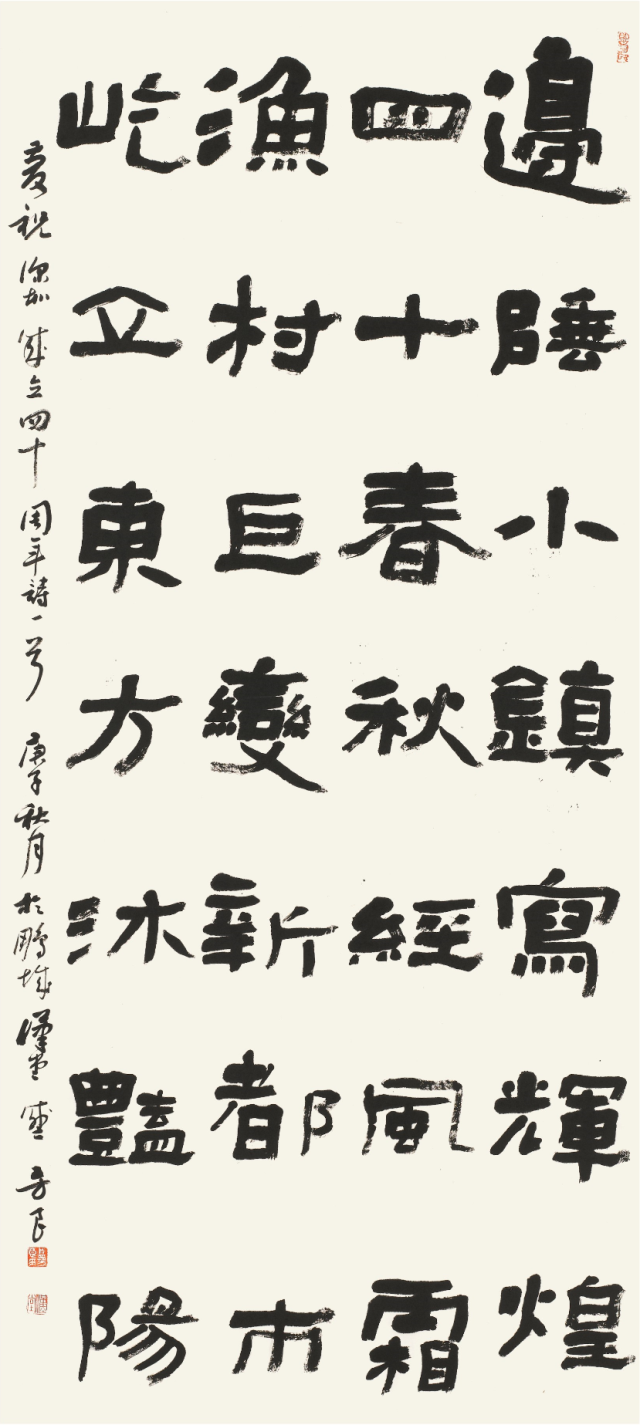 邊陲小鎮寫輝煌
四十春秋經風霜
漁村巨變新都市
屹立東方沐豔陽
慶祝深圳成立四十周年詩一首 庚子秋月於鵬城